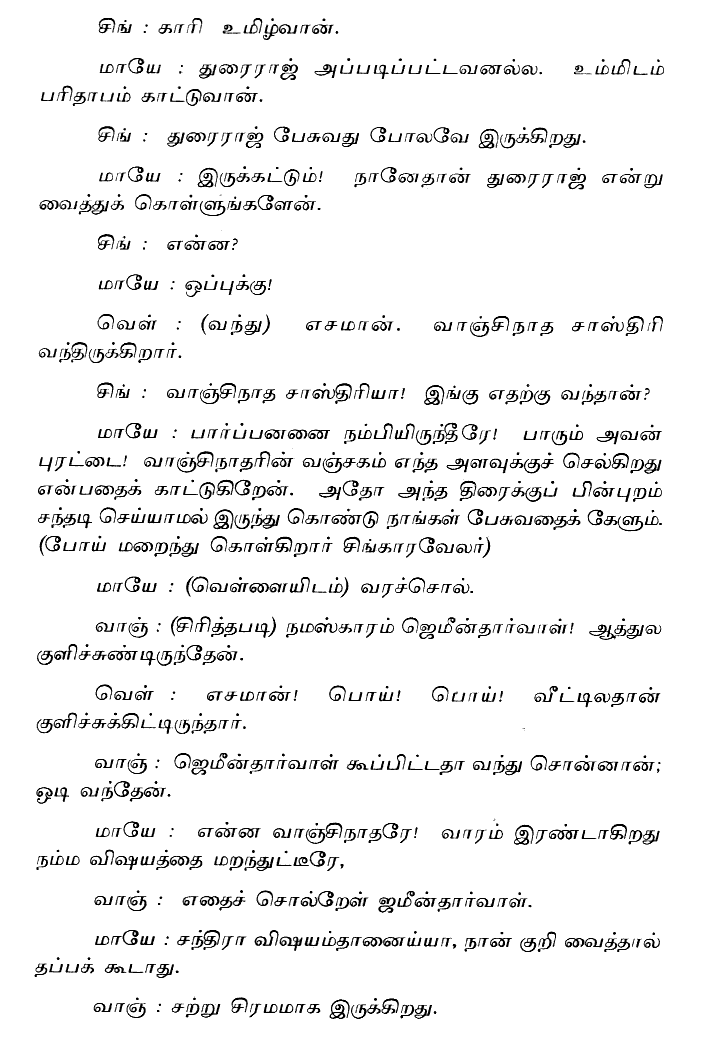 சிங் : காரி உமிழ்வான்.
மாயே : துரைராஜ் அப்படிப்பட்டவனல்ல. உம்மிடம்
பரிதாபம் காட்டுவான்.
சிங் : துரைராஜ் பேசுவது போலவே இருக்கிறது.
மாயே : இருக்கட்டும்! நானேதான் துரைராஜ் என்று
வைத்துக் கொள்ளுங்களேன்.
சிங் : என்ன?
மாயே : ஒப்புக்கு!
வெள் : (வந்து) எசமான். வாஞ்சிநாத சாஸ்திரி
வந்திருக்கிறார்.
சிங் : வாஞ்சிநாத சாஸ்திரியா! இங்கு எதற்கு வந்தான்?
மாயே : பார்ப்பனனை நம்பியிருந்தீரே! பாரும் அவன்
புரட்டை! வாஞ்சிநாதரின் வஞ்சகம் எந்த அளவுக்குச் செல்கிறது
என்பதைக் காட்டுகிறேன். அதோ அந்த திரைக்குப் பின்புறம்
சந்தடி செய்யாமல் இருந்து கொண்டு நாங்கள் பேசுவதைக் கேளும்.
(போய் மறைந்து கொள்கிறார் சிங்காரவேலர்)
மாயே : (வெள்ளையிடம்) வரச்சொல்.
வாஞ் : (சிரித்தபடி) நமஸ்காரம் ஜெமீன்தார்வாள்! ஆத்துல
குளிச்சுண்டிருந்தேன்.
வெள் : எசமான்! பொய்! பொய்! வீட்டிலதான்
குளிச்சுக்கிட்டிருந்தார்.
வாஞ் : ஜெமீன்தார்வாள் கூப்பிட்டதா வந்து சொன்னான்;
ஒடி வந்தேன்.
மாயே : என்ன வாஞ்சிநாதரே! வாரம் இரண்டாகிறது
நம்ம விஷயத்தை மறந்துட்டீரே,
வாஞ் : எதைச் சொல்றேள் ஜமீன்தார்வாள்.
மாயே : சந்திரா விஷயம்தானைய்யா, நான் குறி வைத்தால்
தப்பக் கூடாது.
வாஞ் : சற்று சிரமமாக இருக்கிறது.